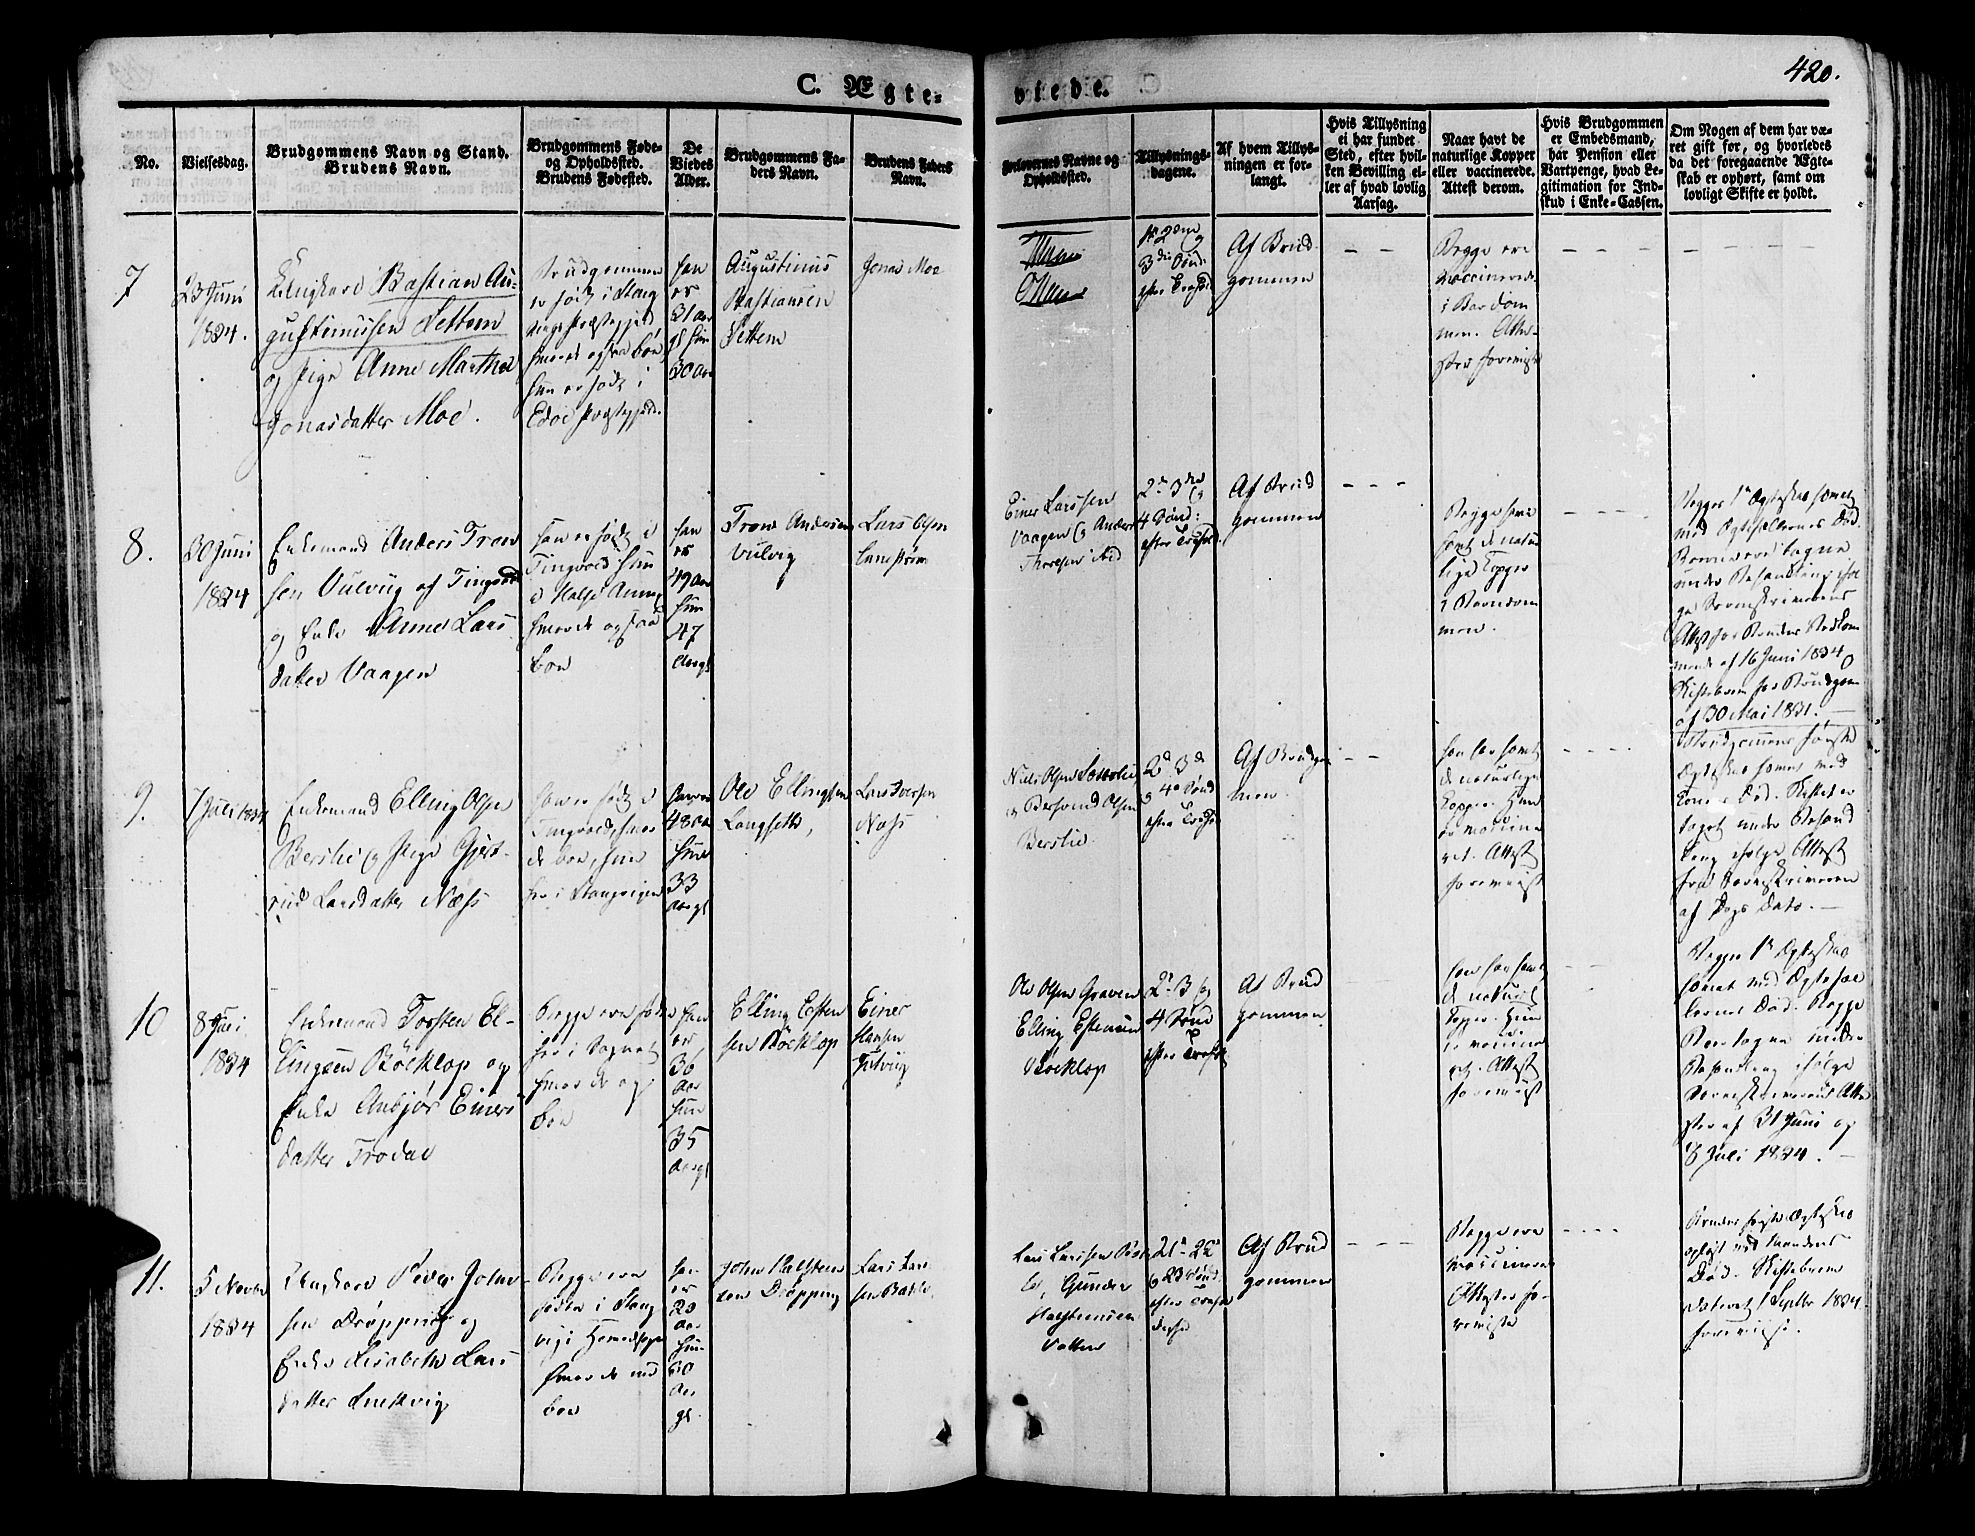 420.
C. Ægte-
viede.
No.
Vielsesdag.
Brudgommens Navn og Stand.
Brudens Navn.
Brudgommens Føde-
og Opholdssted.
Brudens Fødested.
De
Viedes
Alder.
Brudgommens Fa-
ders Navn.
Brudens Faders
Navn.
Forlovernes Navne og
Opholdssted.
Tillysnings-
dagene.
Af hvem Tillys-
ningen er for-
langt.
Hvis Tillysning
ei har fundet
Sted, efter hvil-
ken Bevilling el-
ler af hvad lovlig
Aarsag.
Naar havt de
naturlige Kopper
eller vaccinerede.
Attest derom.
Hvis Brudgommen
er Embedsmand,
har Pension eller
Vartpenge, hvad Le-
gitimation for Ind-
skud i Enke-Cassen.
Om Nogen af dem har væ-
ret gift før, og hvorledes
da det foregaaende Ægte-
skab er ophørt, samt om
lovligt Skifte er holdt.
7
23 Juni
1834.
Ungkarl Bastian Au-
gustinussen Settem
og Pige Anne Martha
Jonasdatter Moe.
Brudgommen
er født i Stang
Hun er født i
Edøe Præstegjeld.
han
er
31 aar
gl hun
30 aar
Augustinus
Bastiansen
Settem
Jonas Moe
3die Sønd
efter Trefold
Af Brud
gommen
Begge ere
vaccinerede
i Barndom
men. Atte-
ster foreviist
8.
30 Juni
1834
Enkemand Anders Tron
sen Vulvig af Tingvold
og Enke Anne Lars
datter Vaagen
han er født i
Tingvold hun
i Halse Annex
hvor de ogsaa
boe
han
er
49 aar
hun
47
aargl
Tron Andersen
Vulvig
Lars Olsen
Einer Larssen
Vaagen og Anders
Thoresen
2de 3die og
4 Sønd:
efter Trefold.
Af Brud
gommen
Begge have
havt de natur
lige Kopper
i Barndom
men.
Begges 1te Ægteskab hævet
med Ægtefællernes Død.
under Behandling iføl
ge Sorenskriverens
Attest for
af 16 Juni 1834 og
Skiftebrev for Brudgom
af 30 Mai 1831.
9.
7 Juli 1834
Enkemand Elling Olsen
Berslie og Pige Gjert-
rud Larsdatter Næss
han er født i
Tingvold, hvor
de boe, hun
her i Stangvigen
han er
48 aar
hun
33
aargl
Ole Ellingsen
Langseth,
Lars Iversen
Næss
Niels Olsen
og Bersvend Olsen
Berslie.
2d 3d
og 4e Sønd
efter Trefold
Af Brudgom
men.
han har havt
de naturlige
Kopper. Hun
er vaccine
ret. Attest
foreviist
Brudgommens første
Ægteskab hævet med
Konens Død. Skiftet er
taget under Behand
ling ifølge Attest
fra Sorenskriveren
af Dags Dato.
10
8 Juli
1834
Enkemand Torsten El-
lingsen Bøeklop og
Enke Anbjør Einers
datter Trodal
Begge ere fød
her i Sognet
hvor de og
boe
han
er
36
aar
hun
35
aargl
Elling Esten
sen Bøeklop
Einer
Hansen
Ole Olsen Graven
Elling Estensen
Bøeklop
2d 3 og
4 Sønd
efter Trefold
Af Brud
gommen
han har havt
de naturl
Kopper. Hun
er vaccine
ret. Attest
foreviist
Begges 1te Ægteskab
hævet med Ægtefæl
lernes Død. Begge
Boer tagne under
Behandling ifølge
Sorenskriverens Atte
ster af 31 Juni og
8 Juli 1834.
11.
5 Novbr
1834
Ungkarl Peder John
sen Drøpping og
Enke Lisabeth Lars
datter
Begge ere
fødte i Stang
vigs Hovedsogn
hvor de
boe
han
er
aar
hun
aar
gl.
John Halsten
sen Drøpping
Lars Lar
sen
Lars Larssen
Gunder
Halstensen
21de 22de
og 23 Sønd
efter Trefol
dighed
Af Brud
gommen
Begge ere
vaccinerede
Attester fo-
reviste
Brudens første Ægteskab
opløst ved Mandens
Død. Skiftebrev
dateret 1 Septbr 1834
foreviist.